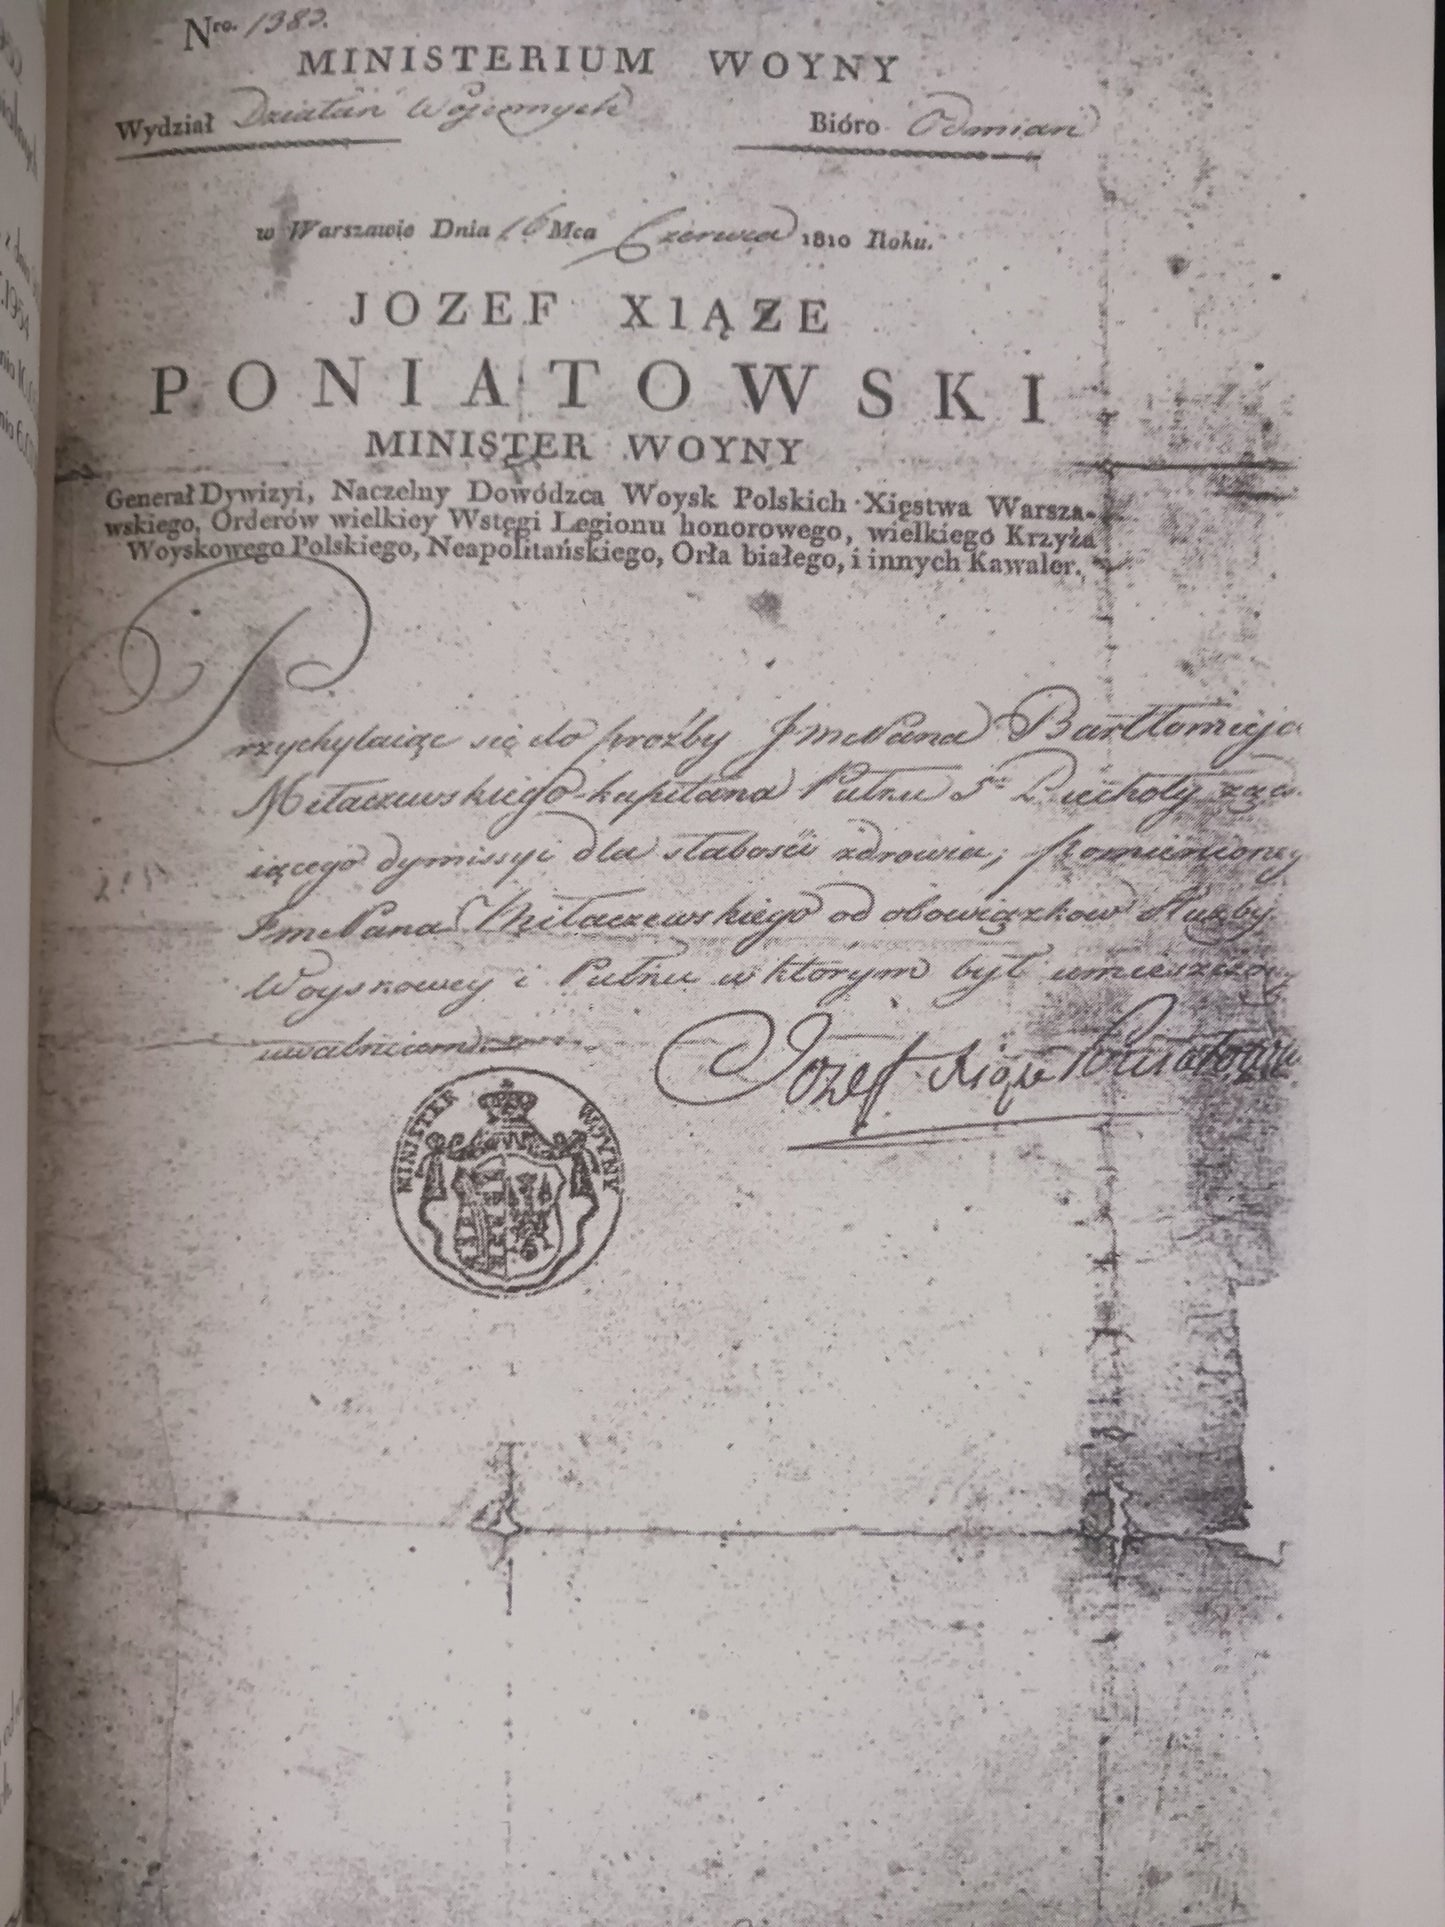 Nro. 1383.
MINISTERIUM WOYNY
Wydział Działań Wojennych Bióro Odmian
w Warszawie Dnia 16 Mca Czerwca 1810 Roku.
JOZEF XIĄZE
PONIATOWSKI
MINISTER WOYNY
Generał Dywizyi, Naczelny Dowódzca Woysk Polskich Xięstwa Warsza-
wskiego, Orderów wielkiey Wstęgi Legionu honorowego, wielkiego Krzyża
Woyskowego Polskiego, Neapolitańskiego, Orła białego, i innych Kawaler.
Przychylaiąc się do proźby JmcPana Bartłomieja
Miłaczewskiego kapitana Pułku 5º Piechoty żąda-
iącego dymissyi dla słabości zdrowia; pomienionego
JmcPana Miłaczewskiego od obowiązkow Służby
Woyskowey i Pułku w którym był umieszczony
uwalniam.
Jozef Xiąże Poniatowski
MINISTER WOYNY